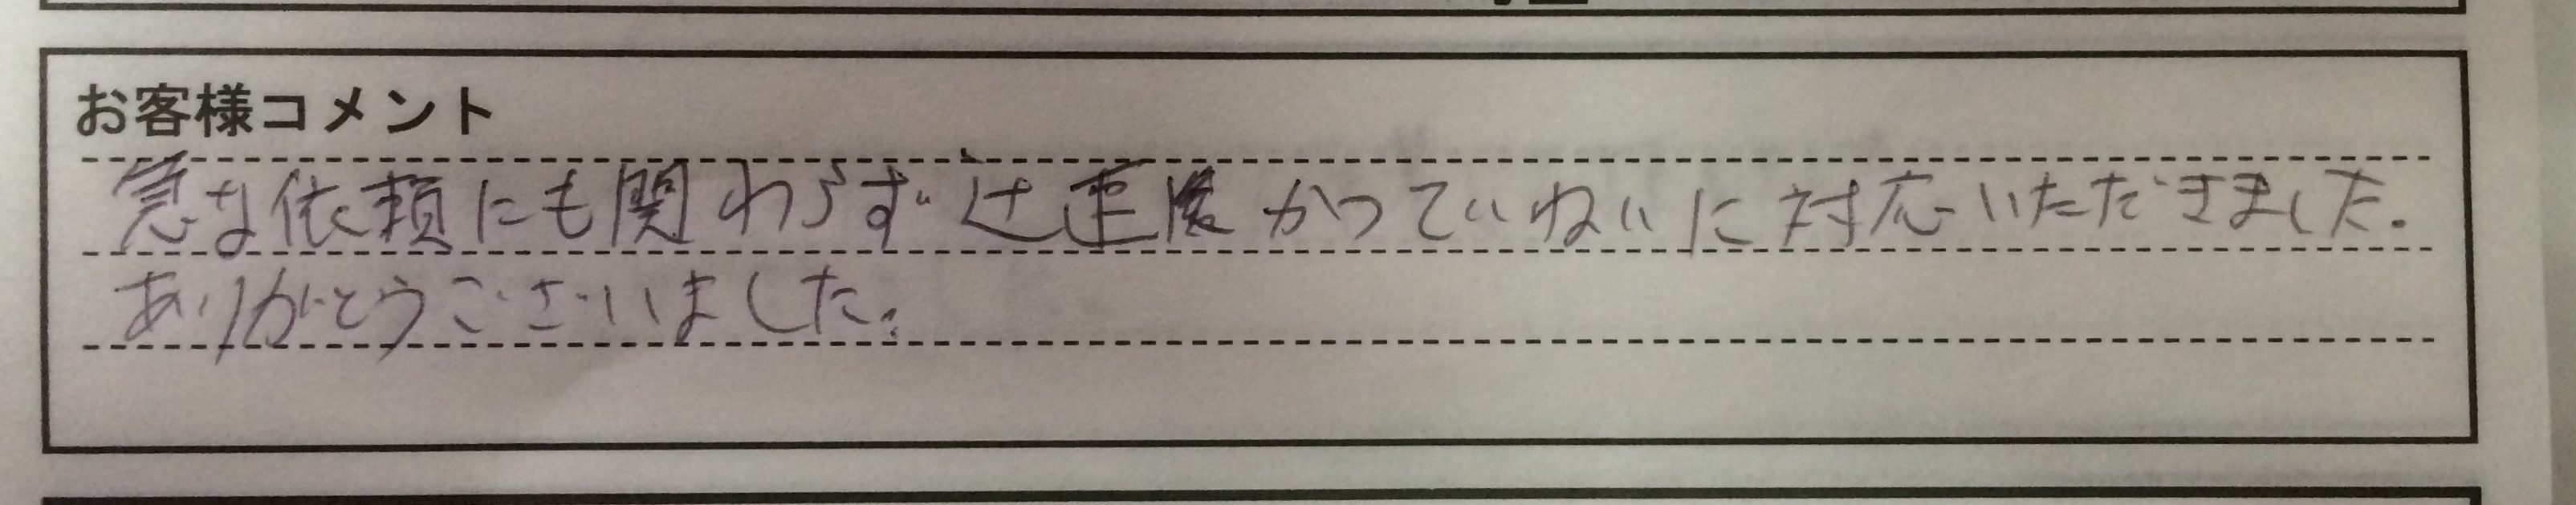 お客様コメント
急な依頼にも関わらず かつていねいに対応いただきました。
ありがとうございました。